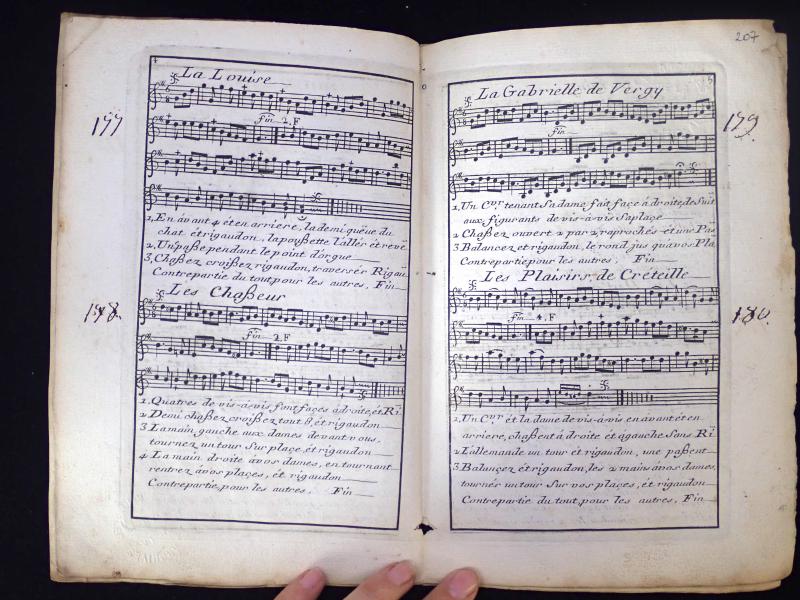 4
La Louise
177
Fin 2, F
1, En avant 4 et en arriere, la demi queue du
chat et rigaudon, la poußette l'allés et revé
2, Un paße pendant le point d'orgue
3, Chaßez croißez rigaudon, traversér Rigau
Contrepartie du tout pour les autres, Fin
Les Chaßeur
178
Fin 2, F
1, Quatres de vis-à-vis font façes à droite, et Ri
2, Demi chaßez croißez tout 8 et rigaudon
3 La main gauche aux dames devant vous,
tournez un tour Sur plaçe, et rigaudon
4 La main droite à vos dames, en tournant
rentrez à vos plaçes, et rigaudon
Contrepartie, pour les autres, Fin
207
5
La Gabrielle de Vergy
179
Fin
1, Un Cer tenant Sa dame fait façe à droite, de Suit
aux figurants de vis-à-vis Sa plaçe
2 Chaßez ouvert 2 par 2, raprochés et un Pas
3 Balancez et rigaudon, le rond jus qu'a vos Pla
Contrepartie pour les autres, Fin
Les Plaisirs, de Créteille
180
Fin 4, F
1, Un Cer et la dame de vis-à-vis en avant et en
arriere, chaßent à droite et a gauche Sans Ri
2 L'allemande un tour et rigaudon, une paßent
3 Balançez et rigaudon, les 2 mains à vos dames,
tournér un tour Sur vos plaçes, et rigaudon
Contrepartie du tout, pour les autres, Fin